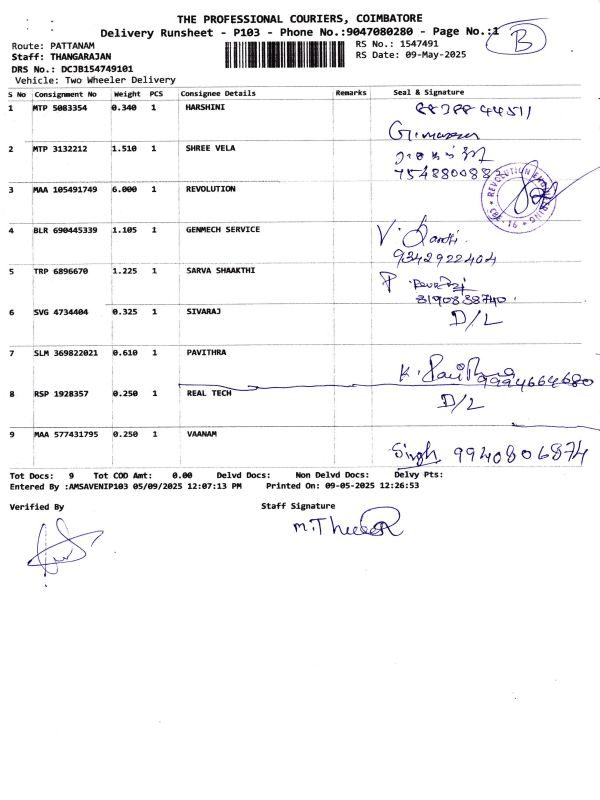 THE PROFESSIONAL COURIERS, COIMBATORE
Delivery Runsheet - P103 - Phone No.:9047080280 - Page No.:1
B
Route: PATTANAM
RS No.: 1547491
Staff: THANGARAJAN
RS Date: 09-May-2025
DRS No.: DCJB154749101
Vehicle: Two Wheeler Delivery
S No Consignment No Weight PCS Consignee Details Remarks Seal & Signature
1 MTP 5083354 0.340 1 HARSHINI
2 MTP 3132212 1.510 1 SHREE VELA
3 MAA 105491749 6.000 1 REVOLUTION
REVOLUTION
4 BLR 690445339 1.105 1 GENMECH SERVICE
9342922404
5 TRP 6896670 1.225 1 SARVA SHAAKTHI
6 SVG 4734404 0.325 1 SIVARAJ D/L
7 SLM 369822021 0.610 1 PAVITHRA
9994664680
8 RSP 1928357 0.250 1 REAL TECH D/L
9 MAA 577431795 0.250 1 VAANAM
Singh 9940806874
Tot Docs: 9 Tot COD Amt: 0.00 Delvd Docs: Non Delvd Docs: Delvy Pts:
Entered By :AMSAVENIP103 05/09/2025 12:07:13 PM Printed On: 09-05-2025 12:26:53
Verified By Staff Signature